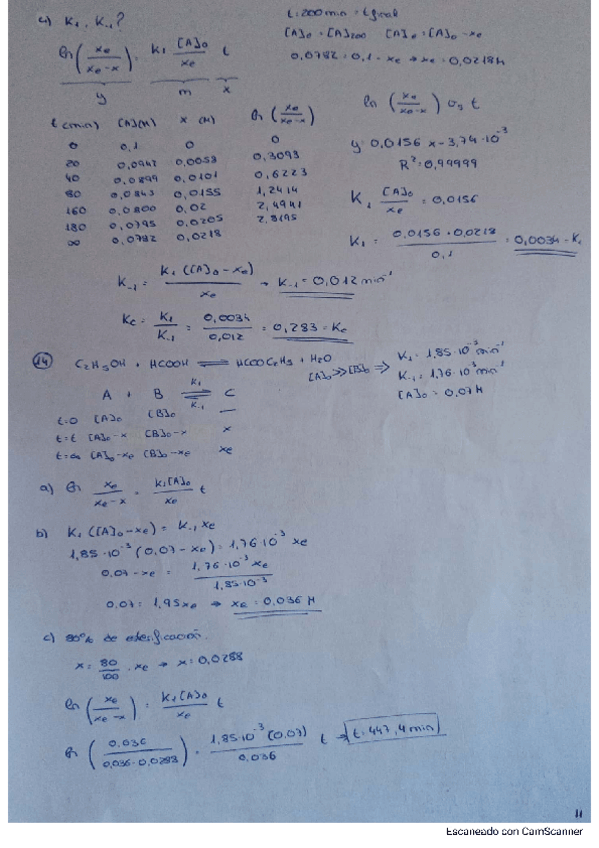 c) K₁, K₋₁?
t = 200 min = t final
[A]e = [A]200 [A]e = [A]₀ - xe
0,0782 = 0,1 - xe → xe = 0,0218 M
ln (xe / xe - x) = k₁ [A]₀ / xe t
y m x
ln (xe / xe - x) vs t
t (min) [A] (M) x (M) ln (xe / xe - x)
0 0,1 0 0
20 0,0942 0,0053 0,3093
40 0,0899 0,0101 0,6223
80 0,0843 0,0155 1,2414
160 0,0800 0,02 2,4941
180 0,0795 0,0205 2,8195
∞ 0,0782 0,0218
y = 0,0156 x - 3,74·10⁻³
R² = 0,99999
K₁ [A]₀ / xe = 0,0156
K₁ = 0,0156 · 0,0218 / 0,1 = 0,0034 = K₁
K₋₁ = K₁ ([A]₀ - xe) / xe → K₋₁ = 0,012 min⁻¹
Kc = K₁ / K₋₁ = 0,0034 / 0,012 = 0,283 = Kc
14 C₂H₅OH + HCOOH ⇌ HCOOC₂H₅ + H₂O
[A]₀ >> [B]₀ ⇒ K₁ = 1,85·10⁻³ min⁻¹
K₋₁ = 1,76·10⁻³ min⁻¹
[A]₀ = 0,07 M
A + B ⇌ C
K₁
K₋₁
t=0 [A]₀ [B]₀ —
t=t [A]₀-x [B]₀-x x
t=∞ [A]₀-xe [B]₀-xe xe
a) ln xe / xe - x = k₁[A]₀ / xe t
b) K₁ ([A]₀ - xe) = K₋₁ xe
1,85·10⁻³ (0,07 - xe) = 1,76·10⁻³ xe
0,07 - xe = 1,76·10⁻³ xe / 1,85·10⁻³
0,07 = 1,95 xe → xe = 0,036 M
c) 80% de esterificación.
x = 80 / 100 · xe → x = 0,0288
ln (xe / xe - x) = K₁[A]₀ / xe t
ln (0,036 / 0,036-0,0288) = 1,85·10⁻³ (0,07) / 0,036 t → t = 447,4 min
11
Escaneado con CamScanner